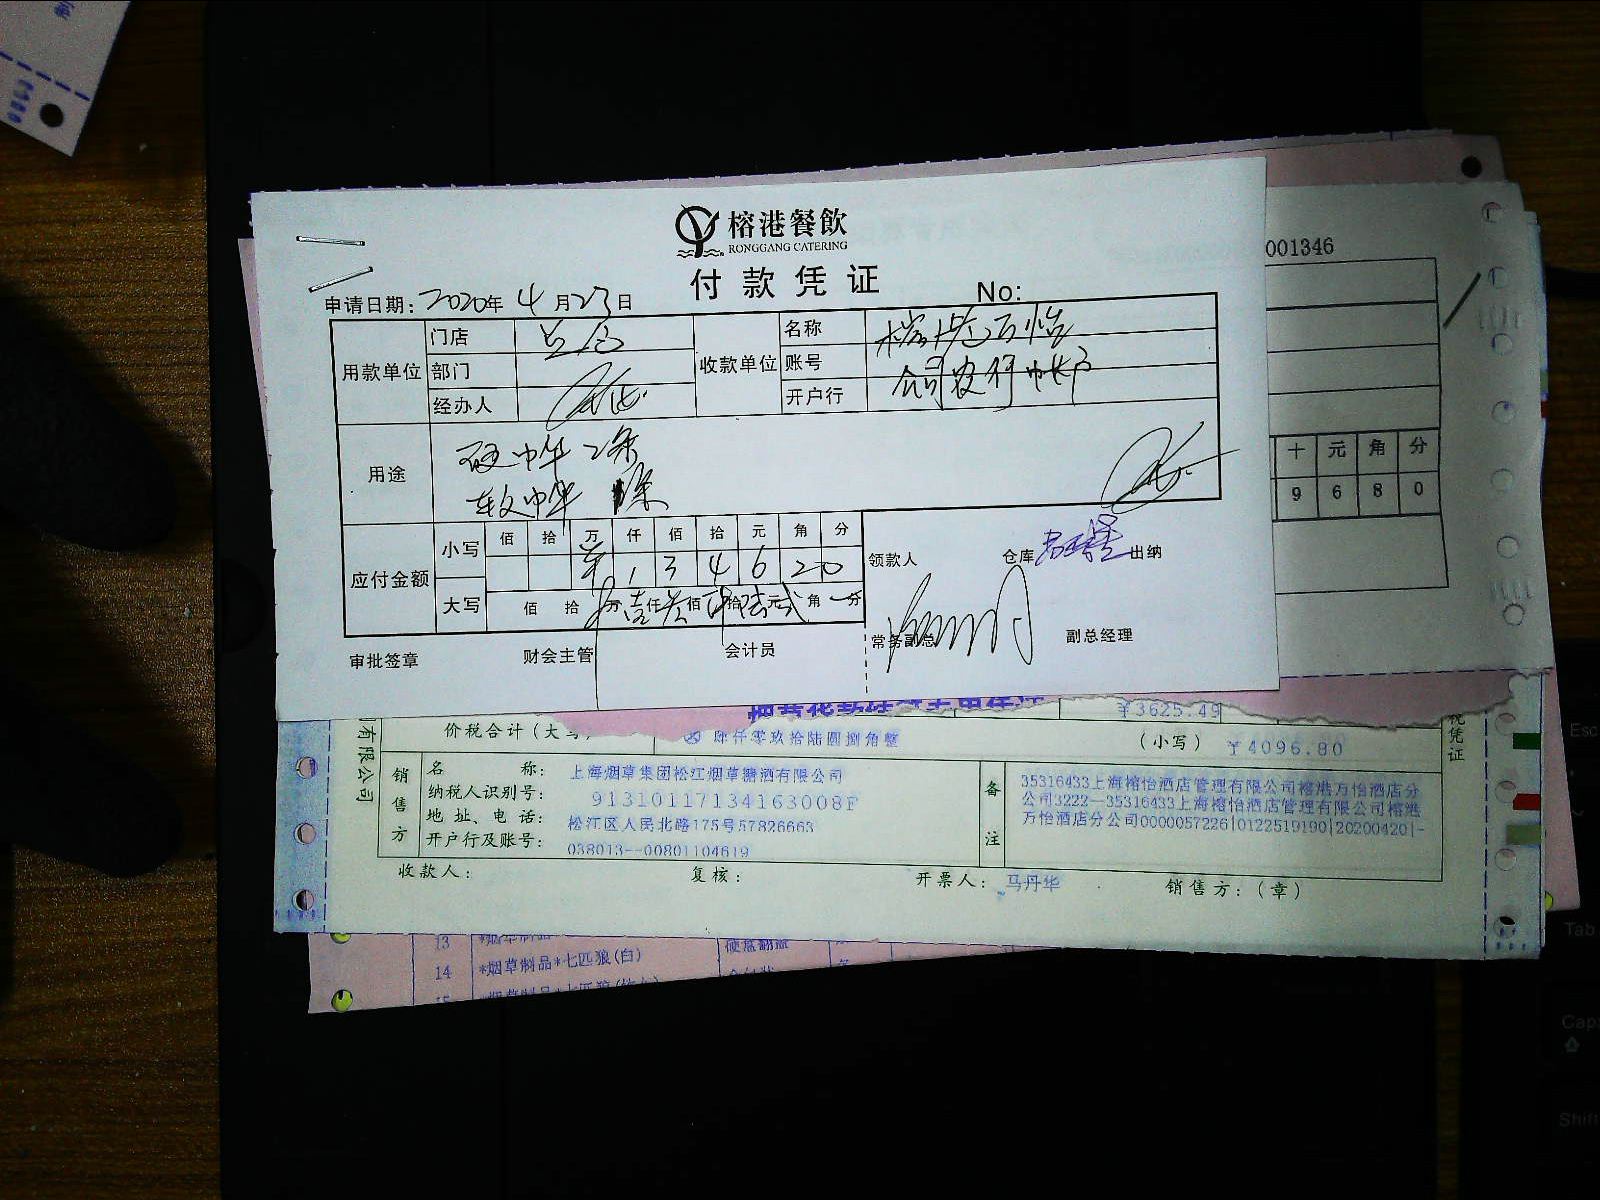 榕港餐飲
RONGGANG CATERING
付款凭证
申请日期: 2020年 4 月 23 日 No:
用款单位 门店 总仓 收款单位 名称 榕港万怡
部门 账号
经办人 开户行 农行帐户
用途 硬中华 2条
软中华
应付金额 小写 佰 拾 万 仟 佰 拾 元 角 分
1 3 4 6 2 0
大写 佰 拾 万 壹仟叁佰 拾陆元贰角 分
领款人 仓库 出纳
审批签章 财会主管 会计员 常务副总 副总经理
001346
十 元 角 分
9 6 8 0
¥3625.49
价税合计(大写) 肆仟零玖拾陆圆捌角整 (小写) ¥4096.80
有限公司
税凭证
销售方
名 称: 上海烟草集团松江烟草糖酒有限公司
纳税人识别号: 91310117134163008F
地址、电话: 松江区人民北路175号57826663
开户行及账号: 038013--00801104619
备注
35316433上海榕怡酒店管理有限公司榕港万怡酒店分
公司3222--35316433上海榕怡酒店管理有限公司榕港
万怡酒店分公司0000057226|0122519190|20200420|-
收款人: 复核: 开票人: 马丹华 销售方:(章)
13 *烟草制品* 硬盒翻盖
14 *烟草制品*七匹狼(白)
15
Esc
Tab
Cap
Shift